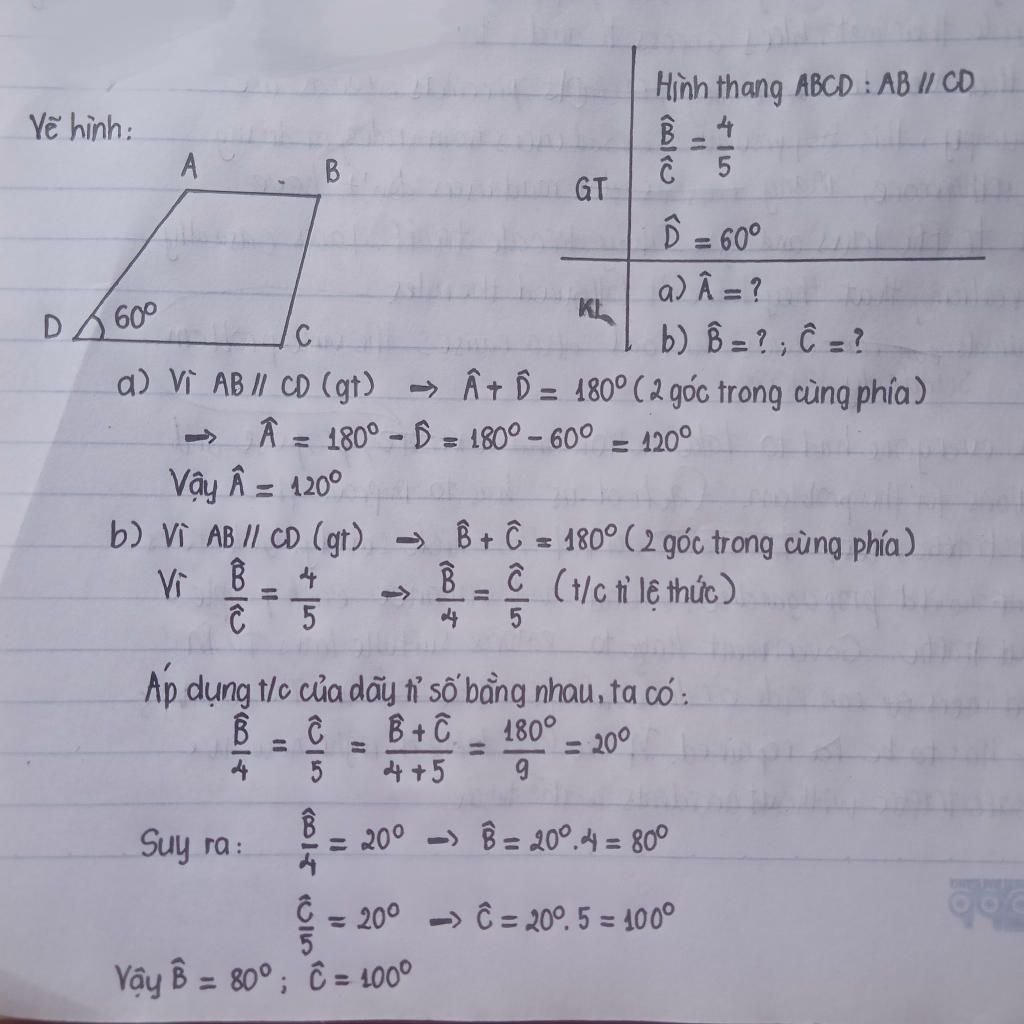 Vẽ hình:
A
B
D
60°
C
Hình thang ABCD : AB // CD
B̂/Ĉ = 4/5
GT
D̂ = 60°
KL
a) Â = ?
b) B̂ = ? ; Ĉ = ?
a) Vì AB // CD (gt) → Â + D̂ = 180° (2 góc trong cùng phía)
→ Â = 180° - D̂ = 180° - 60° = 120°
Vậy Â = 120°
b) Vì AB // CD (gt) → B̂ + Ĉ = 180° (2 góc trong cùng phía)
Vì B̂/Ĉ = 4/5 → B̂/4 = Ĉ/5 (t/c tỉ lệ thức)
Áp dụng t/c của dãy tỉ số bằng nhau, ta có:
B̂/4 = Ĉ/5 = B̂ + Ĉ/4 + 5 = 180°/9 = 20°
Suy ra: B̂/4 = 20° → B̂ = 20°.4 = 80°
Ĉ/5 = 20° → Ĉ = 20°.5 = 100°
Vậy B̂ = 80° ; Ĉ = 100°